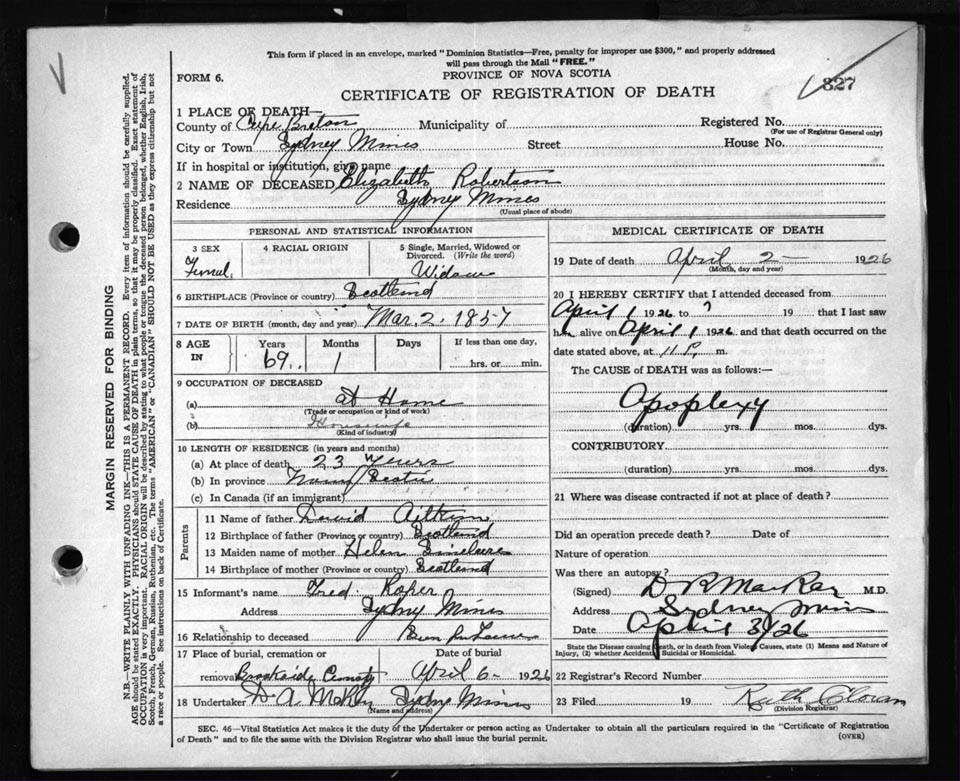 This form if placed in an envelope, marked "Dominion Statistics—Free, penalty for improper use $300," and properly addressed
will pass through the Mail "FREE."
FORM 6.
PROVINCE OF NOVA SCOTIA
827
CERTIFICATE OF REGISTRATION OF DEATH
1 PLACE OF DEATH—
County of Cape Breton Municipality of Registered No.
(For use of Registrar General only)
City or Town Sydney Mines Street House No.
If in hospital or institution, give name
2 NAME OF DECEASED Elizabeth Robertson
Residence Sydney Mines
(Usual place of abode)
PERSONAL AND STATISTICAL INFORMATION
3 SEX 4 RACIAL ORIGIN 5 Single, Married, Widowed or
Divorced. (Write the word)
Femal Widow
6 BIRTHPLACE (Province or country) Scotland
7 DATE OF BIRTH (month, day and year) Mar. 2. 1857
8 AGE IN Years Months Days If less than one day,
69 1 hrs. or min.
9 OCCUPATION OF DECEASED
(a) at Home
(Trade or occupation or kind of work)
(b) Housewife
(Kind of industry)
10 LENGTH OF RESIDENCE (in years and months)
(a) At place of death 23 years
(b) In province Nova Scotia
(c) In Canada (if an immigrant)
Parents
11 Name of father David
12 Birthplace of father (Province or country) Scotland
13 Maiden name of mother Helen
14 Birthplace of mother (Province or country) Scotland
15 Informant's name Fred. Roper
Address Sydney Mines
16 Relationship to deceased
17 Place of burial, cremation or Date of burial
removal Brookside April 6- 1926
18 Undertaker D. A. Sydney Mines
(Name and address)
MEDICAL CERTIFICATE OF DEATH
19 Date of death April 2— 1926
(Month, day and year)
20 I HEREBY CERTIFY that I attended deceased from
April 1 1926 to ? 19 that I last saw
h alive on April 1 1926 and that death occurred on
date stated above, at 11 P. m.
The CAUSE of DEATH was as follows:—
Apoplexy
(duration) yrs. mos. dys.
CONTRIBUTORY
(duration) yrs. mos. dys.
21 Where was disease contracted if not at place of death?
Did an operation precede death? Date of
Nature of operation
Was there an autopsy?
(Signed) D R MacRae M.D.
Address Sydney Mines
Date April 3/26
State the Disease causing Death, or in death from Violent Causes, state (1) Means and Nature of
Injury, (2) whether Accidental, Suicidal or Homicidal.
22 Registrar's Record Number
23 Filed 19 Ruth
(Division Registrar)
SEC. 46—Vital Statistics Act makes it the duty of the Undertaker or person acting as Undertaker to obtain all the particulars required in the "Certificate of Registration
of Death" and to file the same with the Division Registrar who shall issue the burial permit.
(OVER)
MARGIN RESERVED FOR BINDING
N.B.—WRITE PLAINLY WITH UNFADING INK—THIS IS A PERMANENT RECORD. Every item of information should be carefully supplied.
AGE should be stated EXACTLY. PHYSICIANS should STATE CAUSE OF DEATH in plain terms, so that it may be properly classified. Exact statement of
OCCUPATION is very important. RACIAL ORIGIN will be described by stating to what people or tongue the deceased person belonged, whether English, Irish,
Scotch, French, German, Russian, Ruthenian, etc. The terms "AMERICAN" or "CANADIAN" SHOULD NOT BE USED as they express citizenship but not
a race or people. See instructions on back of Certificate.